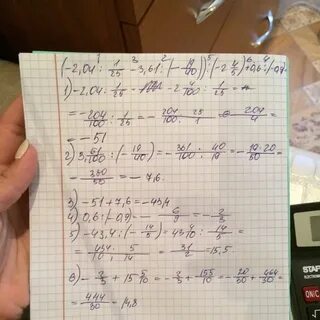 (-2,04 : 1/25 - 3,61 : (-19/40)) : (-2 4/5) + 0,6 : (-0,9)
1) -2,04 : 1/25 = -2 4/100 : 1/25 =
= -204/100 : 1/25 = -204/100 · 25/1 = -204/4 =
= -51
2) 3 61/100 : (-19/40) = -361/100 · 40/19 = -19·20/50 =
= -380/50 = -7,6.
3) -51 + 7,6 = -43,4
4) 0,6 : (-0,9) = -6/9 = -2/3
5) -43,4 : (-14/5) = 43 4/10 : 14/5 =
= 434/10 · 5/14 = 31/2 = 15,5
6) -2/3 + 15 5/10 = -2/3 + 155/10 = -20/30 + 464/30 =
= 444/30 = 14,8
STAFF
ON/C